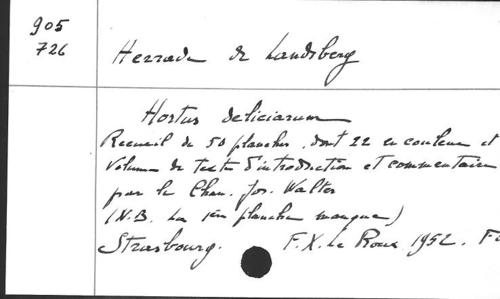 905
726
Herrade de Landsberg
Hortus deliciarum
Recueil de 50 planches, dont 22 en couleur et
volume de texte d'introduction et commentaire
par le Chan. Jos. Walter
(N.B. La 1ère planche manque)
Strasbourg. F.X. Le Roux 1952. Fo